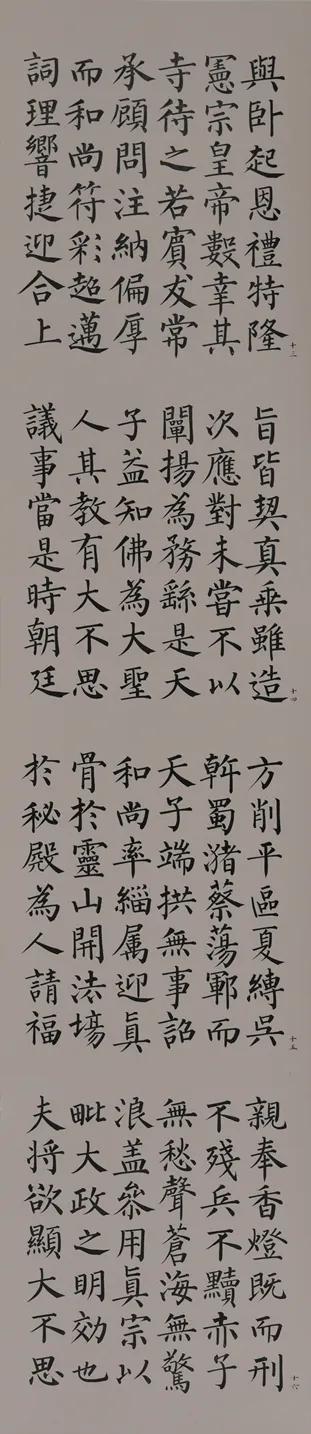 與卧起恩禮特隆
憲宗皇帝數幸其
寺待之若賓友常
承顧問注納偏厚
而和尚符彩超邁
詞理響捷迎合上
十三
旨皆契真乘雖造
次應對未嘗不以
闡揚為務繇是天
子益知佛為大聖
人其教有大不思
議事當是時朝廷
十四
方削平區夏縛吳
斡蜀潴蔡蕩鄆而
天子端拱無事詔
和尚率緇属迎眞
骨於靈山開法場
於秘殿為人請福
十五
親奉香燈既而刑
不殘兵不黷赤子
無愁聲蒼海無驚
浪盖叅用眞宗以
毗大政之明効也
夫將欲顯大不思
十六